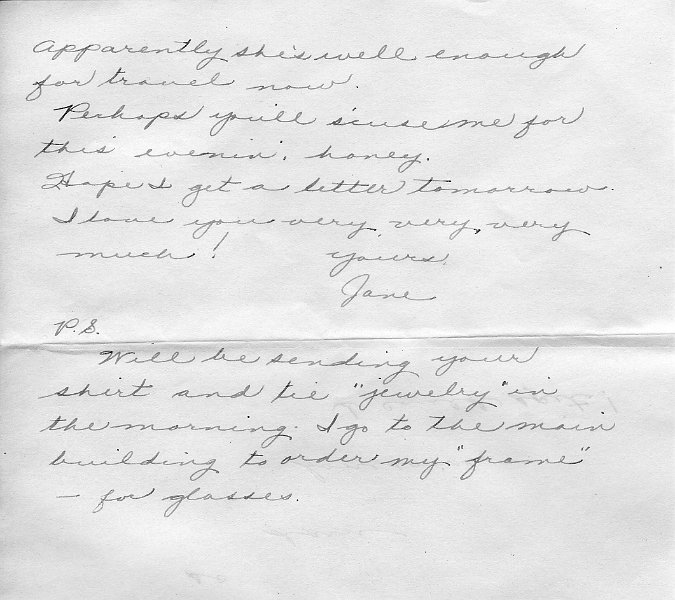 apparently she's well enough
for travel now.
Perhaps you'll s'cuse me for
this evenin', honey.
Hope I get a letter tomorrow.
I love you very, very, very
much! Yours,
Jane
P.S.
Will be sending your
shirt and tie "jewelry" in
the morning. I go to the main
building to order my "frame"
— for glasses.